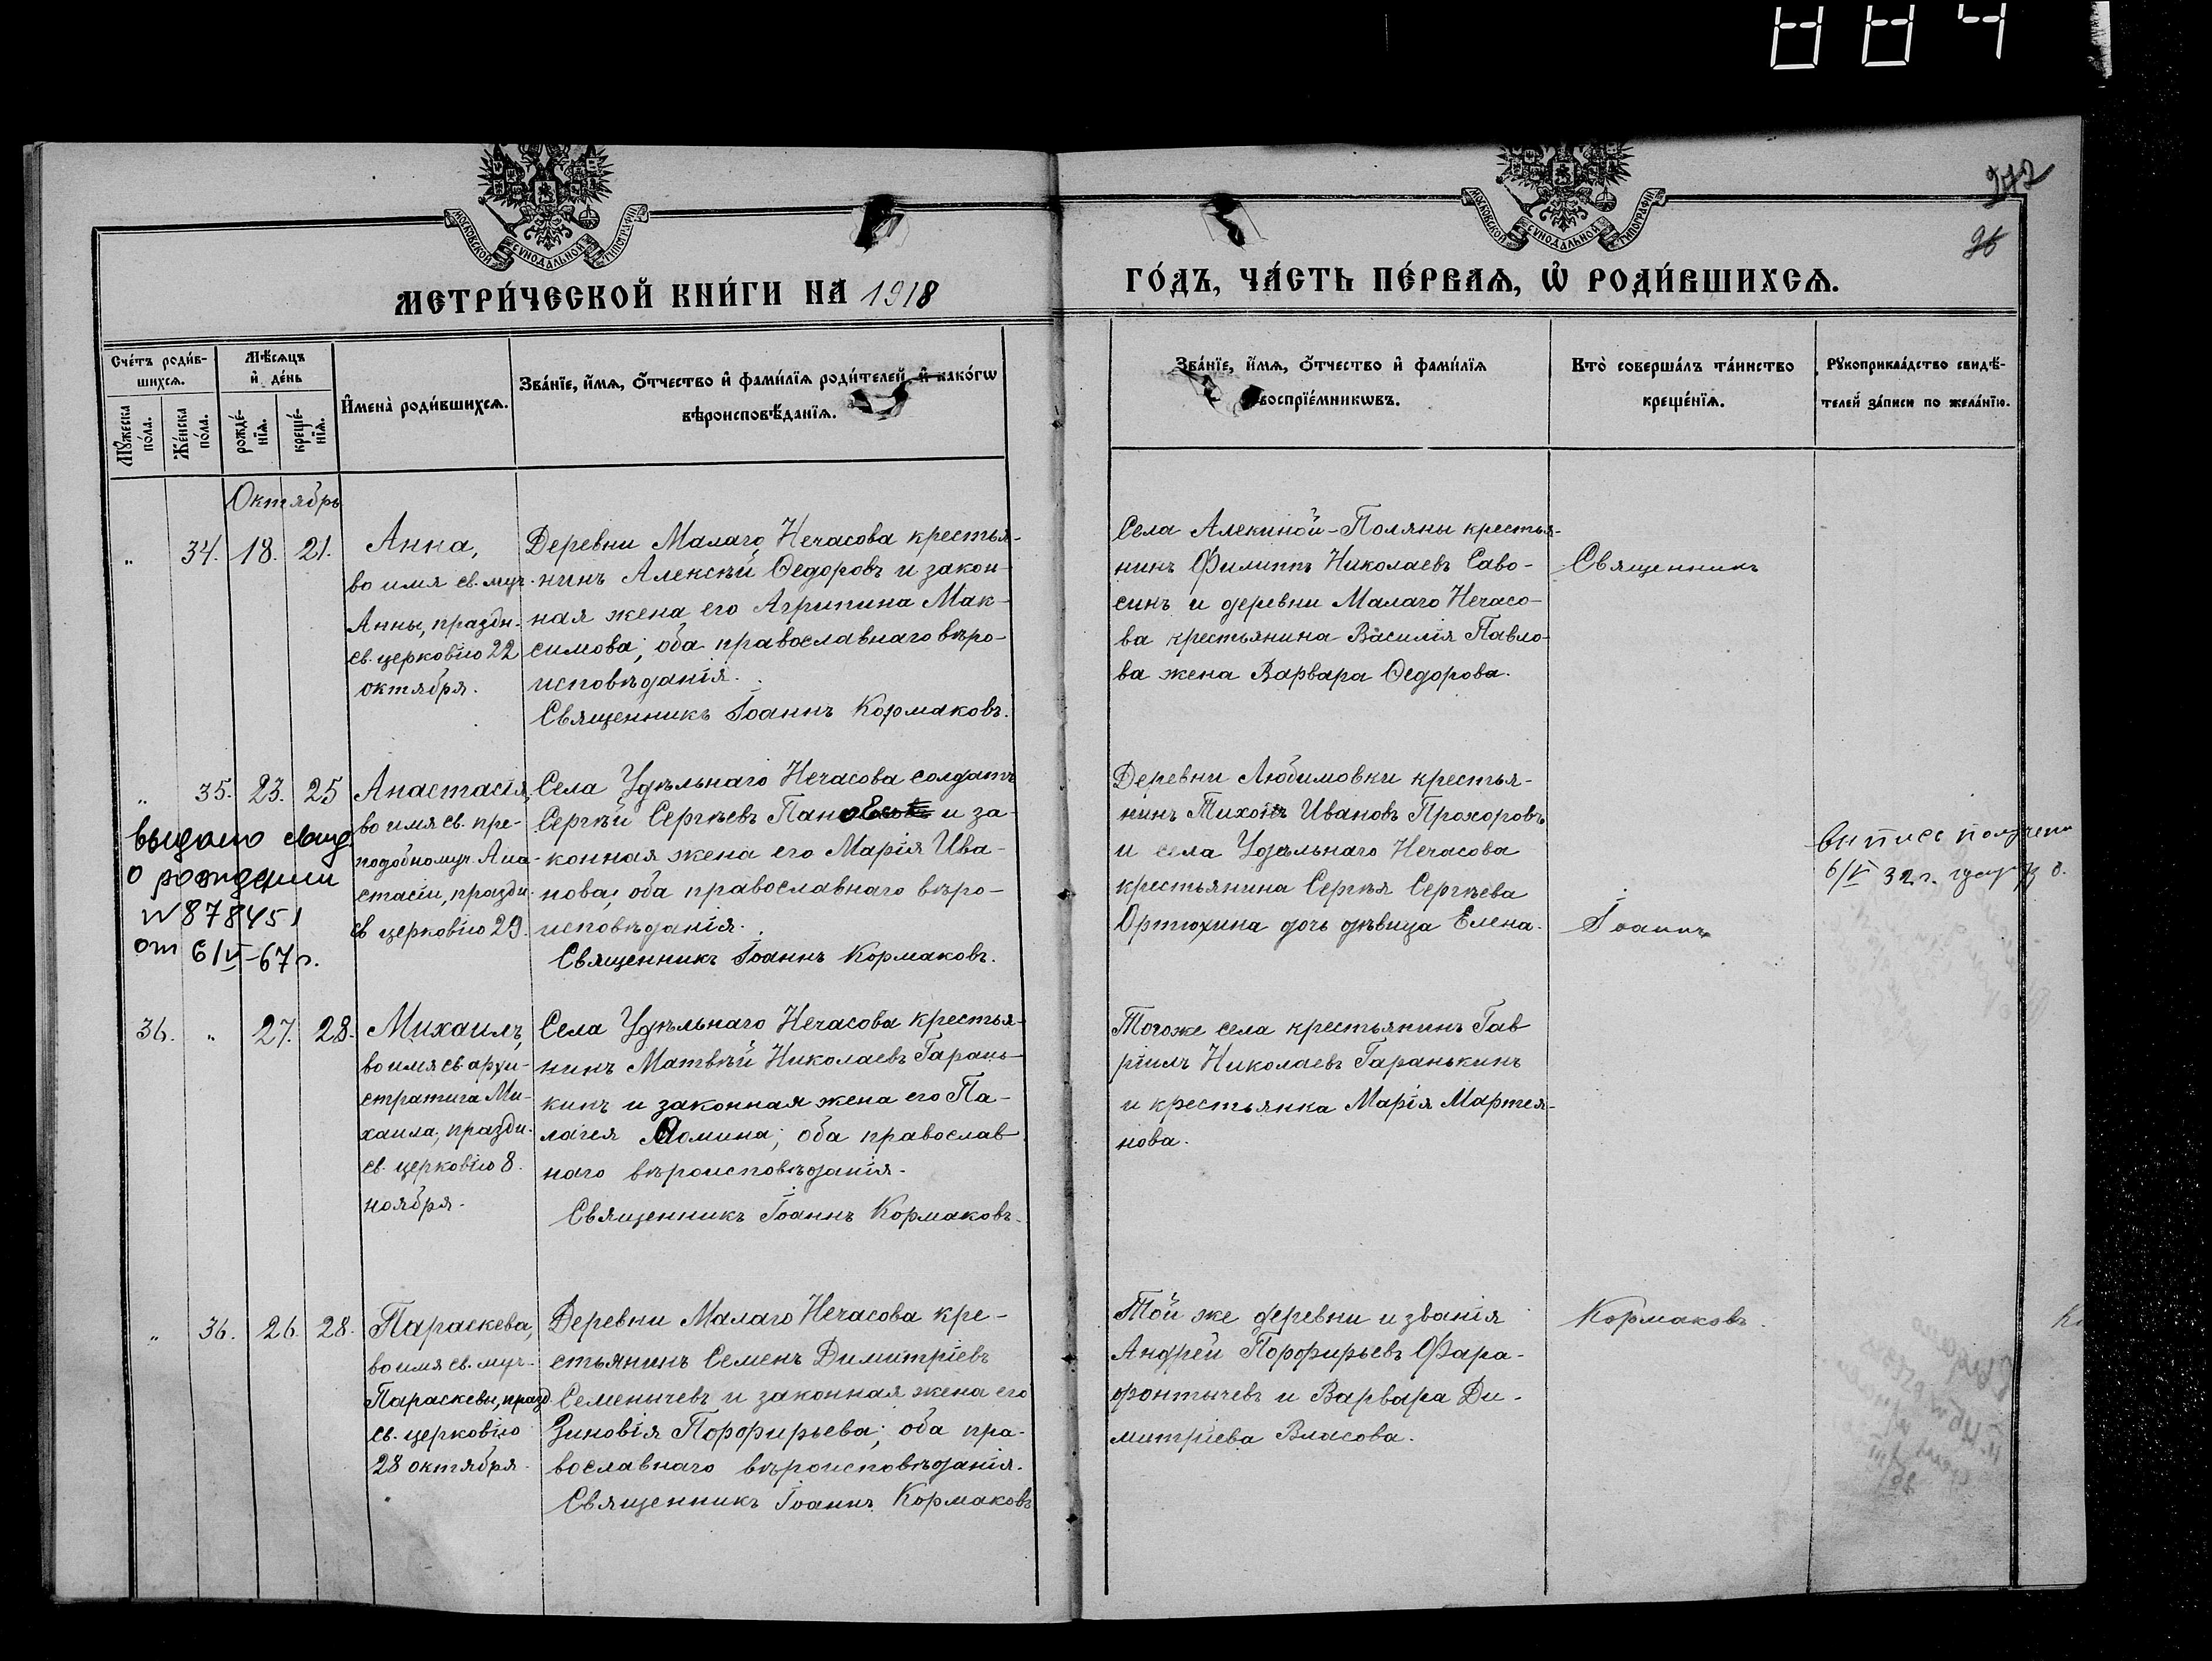 884
272
96
МОСКОВСКОЙ СѴНОДАЛЬНОЙ ТИПОГРАФІИ
МОСКОВСКОЙ СѴНОДАЛЬНОЙ ТИПОГРАФІИ
МЕТРИ́ЧЕСКОЙ КНИ́ГИ НА 1918
ГО́ДЪ, ЧА́СТЬ ПЕ́РВАѦ, Ѡ҆ РОДИ́ВШИХСѦ.
Сче́тъ роди́в-
шихсѧ.
Мѣ́сѧцъ
и҆ де́нь
Мꙋ́жеска
по́ла.
Же́нска
по́ла.
рожде́-
нїѧ.
креще́-
нїѧ.
И҆мена̀ роди́вшихсѧ.
Зва́нїе, и҆́мѧ, ѻ҆́тчество и҆ фами́лїѧ роди́телей, и҆ како́гѡ
вѣроисповѣ́данїѧ.
Зва́нїе, и҆́мѧ, ѻ҆́тчество и҆ фами́лїѧ
воспрїе́мникѡвъ.
Кто̀ соверша́лъ та́инство
креще́нїѧ.
Рꙋкоприкла́дство свидѣ́-
телей за́писи по жела́нїю.
Октябрь
" 34. 18. 21.
Анна,
во имя св. муч.
Анны, праздн.
св. церковію 22
октября.
Деревни Малаго Нечасова крестья-
нинъ Алексѣй Ѳедоровъ и закон-
ная жена его Агрипина Мак-
симова; оба православнаго вѣро-
исповѣданія.
Священникъ Іоаннъ Кормаковъ.
Села Алекиной-Поляны крестья-
нинъ Филиппъ Николаевъ Саво-
синъ и деревни Малаго Нечасо-
ва крестьянина Василія Павло-
ва жена Варвара Ѳедорова.
Священникъ
" 35. 23. 25
выдано свид.
о рождении
N 878451
от 6/V-67 г.
Анастасія,
во имя св. пре-
подобномуч. Ана-
стасіи, праздн.
св церковію 29.
Села Удѣльнаго Нечасова солдатъ
Сергѣй Сергѣевъ Панов и за-
конная жена его Марія Ива-
нова; оба православнаго вѣро-
исповѣданія.
Священникъ Іоаннъ Кормаковъ.
Деревни Любимовки крестья-
нинъ Тихонъ Ивановъ Прохоровъ
и села Удѣльнаго Нечасова
крестьянина Сергѣя Сергѣева
Ортюхина дочь дѣвица Елена.
Іоаннъ
выпись получена
6/V 32 г.
36. " 27. 28.
Михаилъ,
во имя св. архи-
стратига Ми-
хаила, праздн.
св. церковію 8.
ноября.
Села Удѣльнаго Нечасова крестья-
нинъ Матвѣй Николаевъ Гарань-
кинъ и законная жена его Па-
лагея Ѳомина; оба православ
наго вѣроисповѣданія.
Священникъ Іоаннъ Кормаковъ.
Тогоже села крестьянинъ Гав
ріилъ Николаевъ Гаранькинъ
и крестьянка Марія Мартея-
нова.
" 36. 26. 28.
Параскева,
во имя св. муч.
Параскевы, празд
св. церковію
28 октября.
Деревни Малаго Нечасова кре-
стьянинъ Семенъ Димитріевъ
Семеничевъ и законная жена его
Зиновія Порфирьева; оба пра-
вославнаго вѣроисповѣданія.
Священникъ Іоаннъ Кормаковъ
Той же деревни и званія
Андрей Порфирьевъ Фара-
фонтычевъ и Варвара Ди-
митріева Власова.
Кормаковъ.